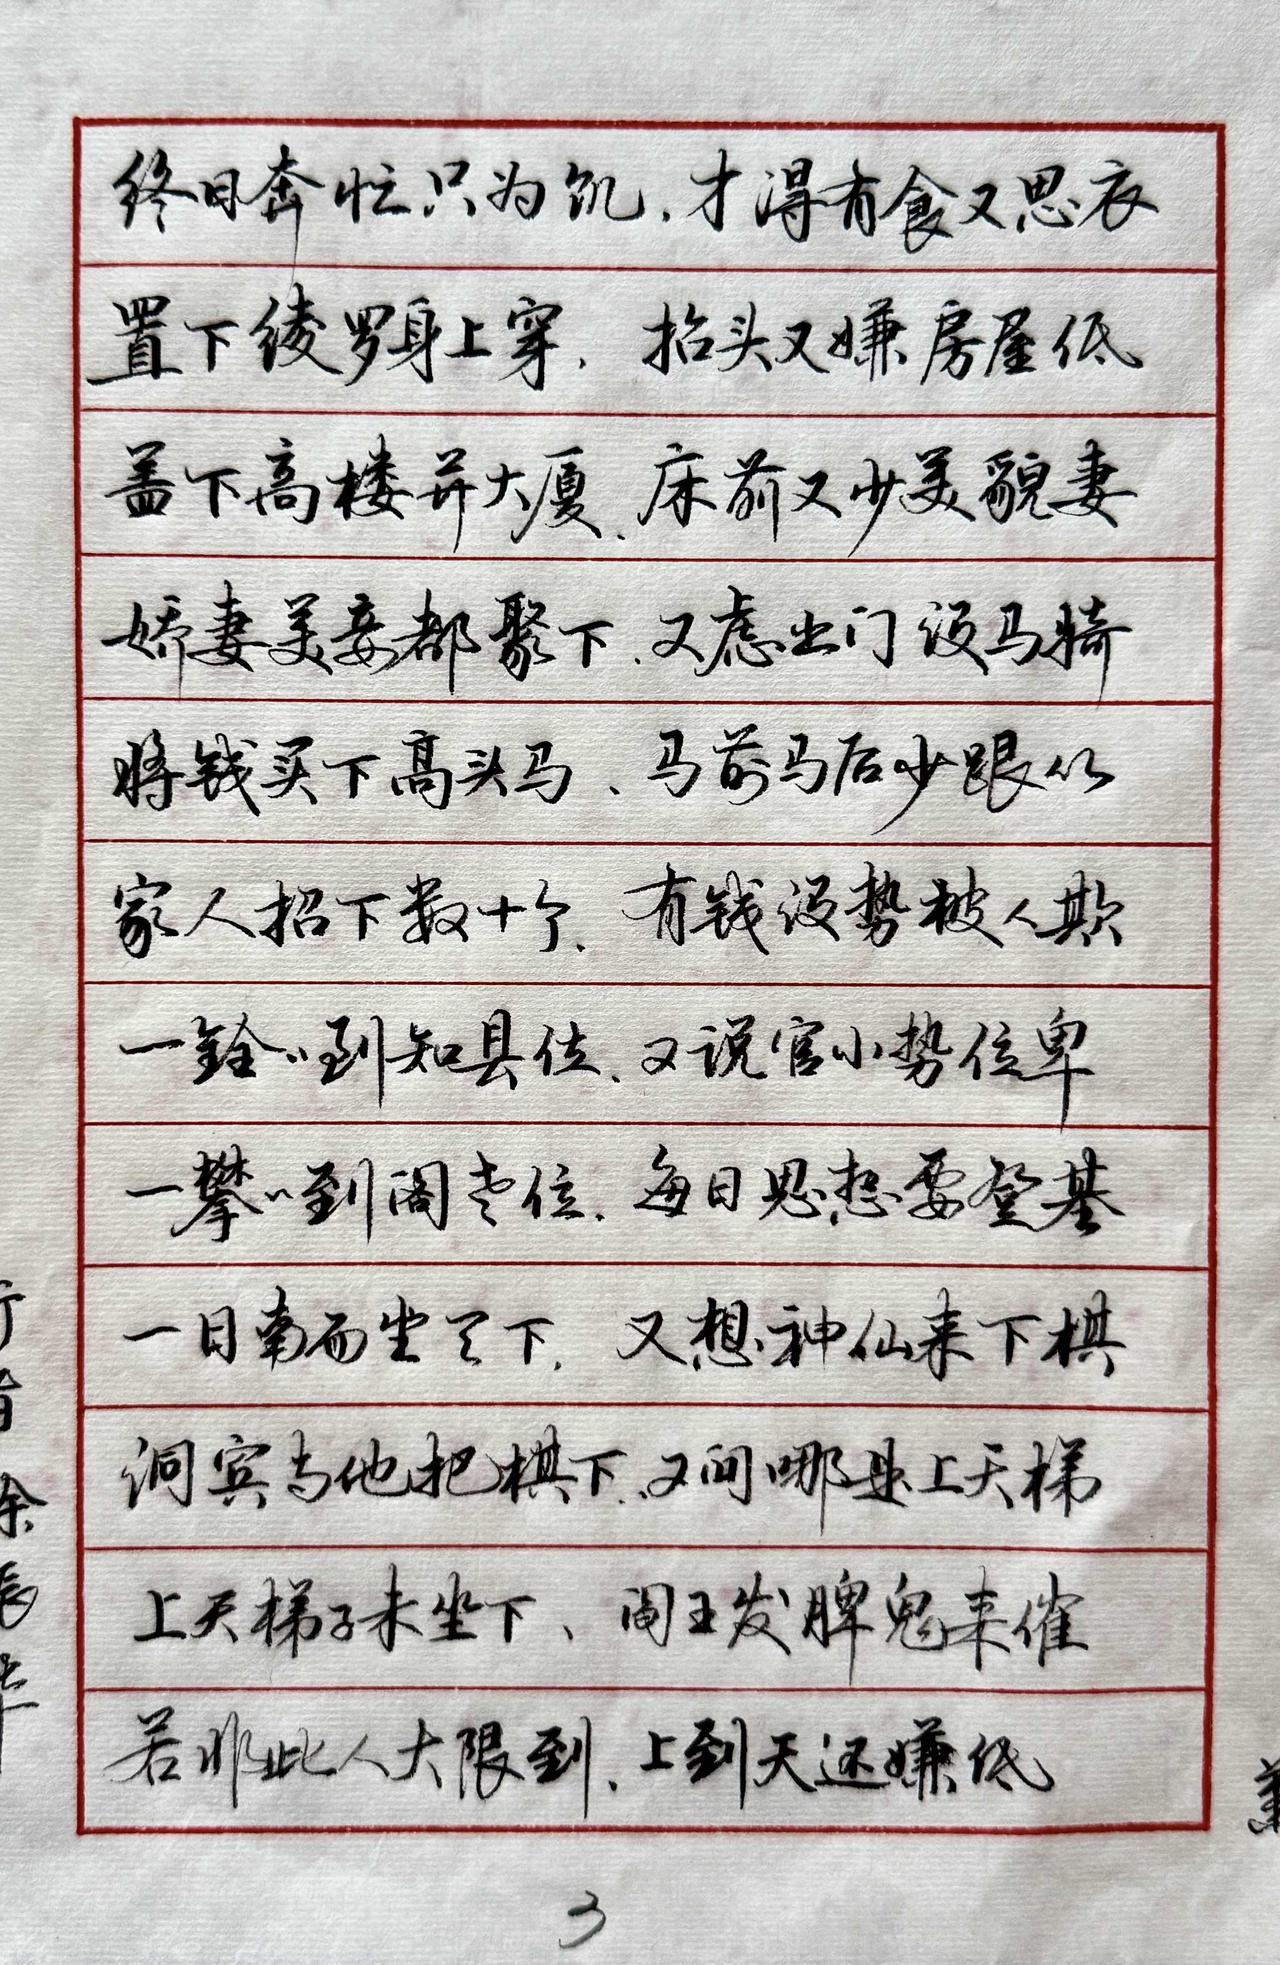 终日奔忙只为饥，才得有食又思衣
置下绫罗身上穿，抬头又嫌房屋低
盖下高楼并大厦，床前又少美貌妻
娇妻美妾都聚下，又虑出门没马骑
将钱买下高头马，马前马后少跟从
家人招下数十个，有钱没势被人欺
一铨铨到知县位，又说官小势位卑
一攀攀到阁老位，每日思想要登基
一日南面坐天下，又想神仙来下棋
洞宾与他把棋下，又问哪是上天梯
上天梯子未坐下，阎王发牌鬼来催
若非此人大限到，上到天还嫌低
3